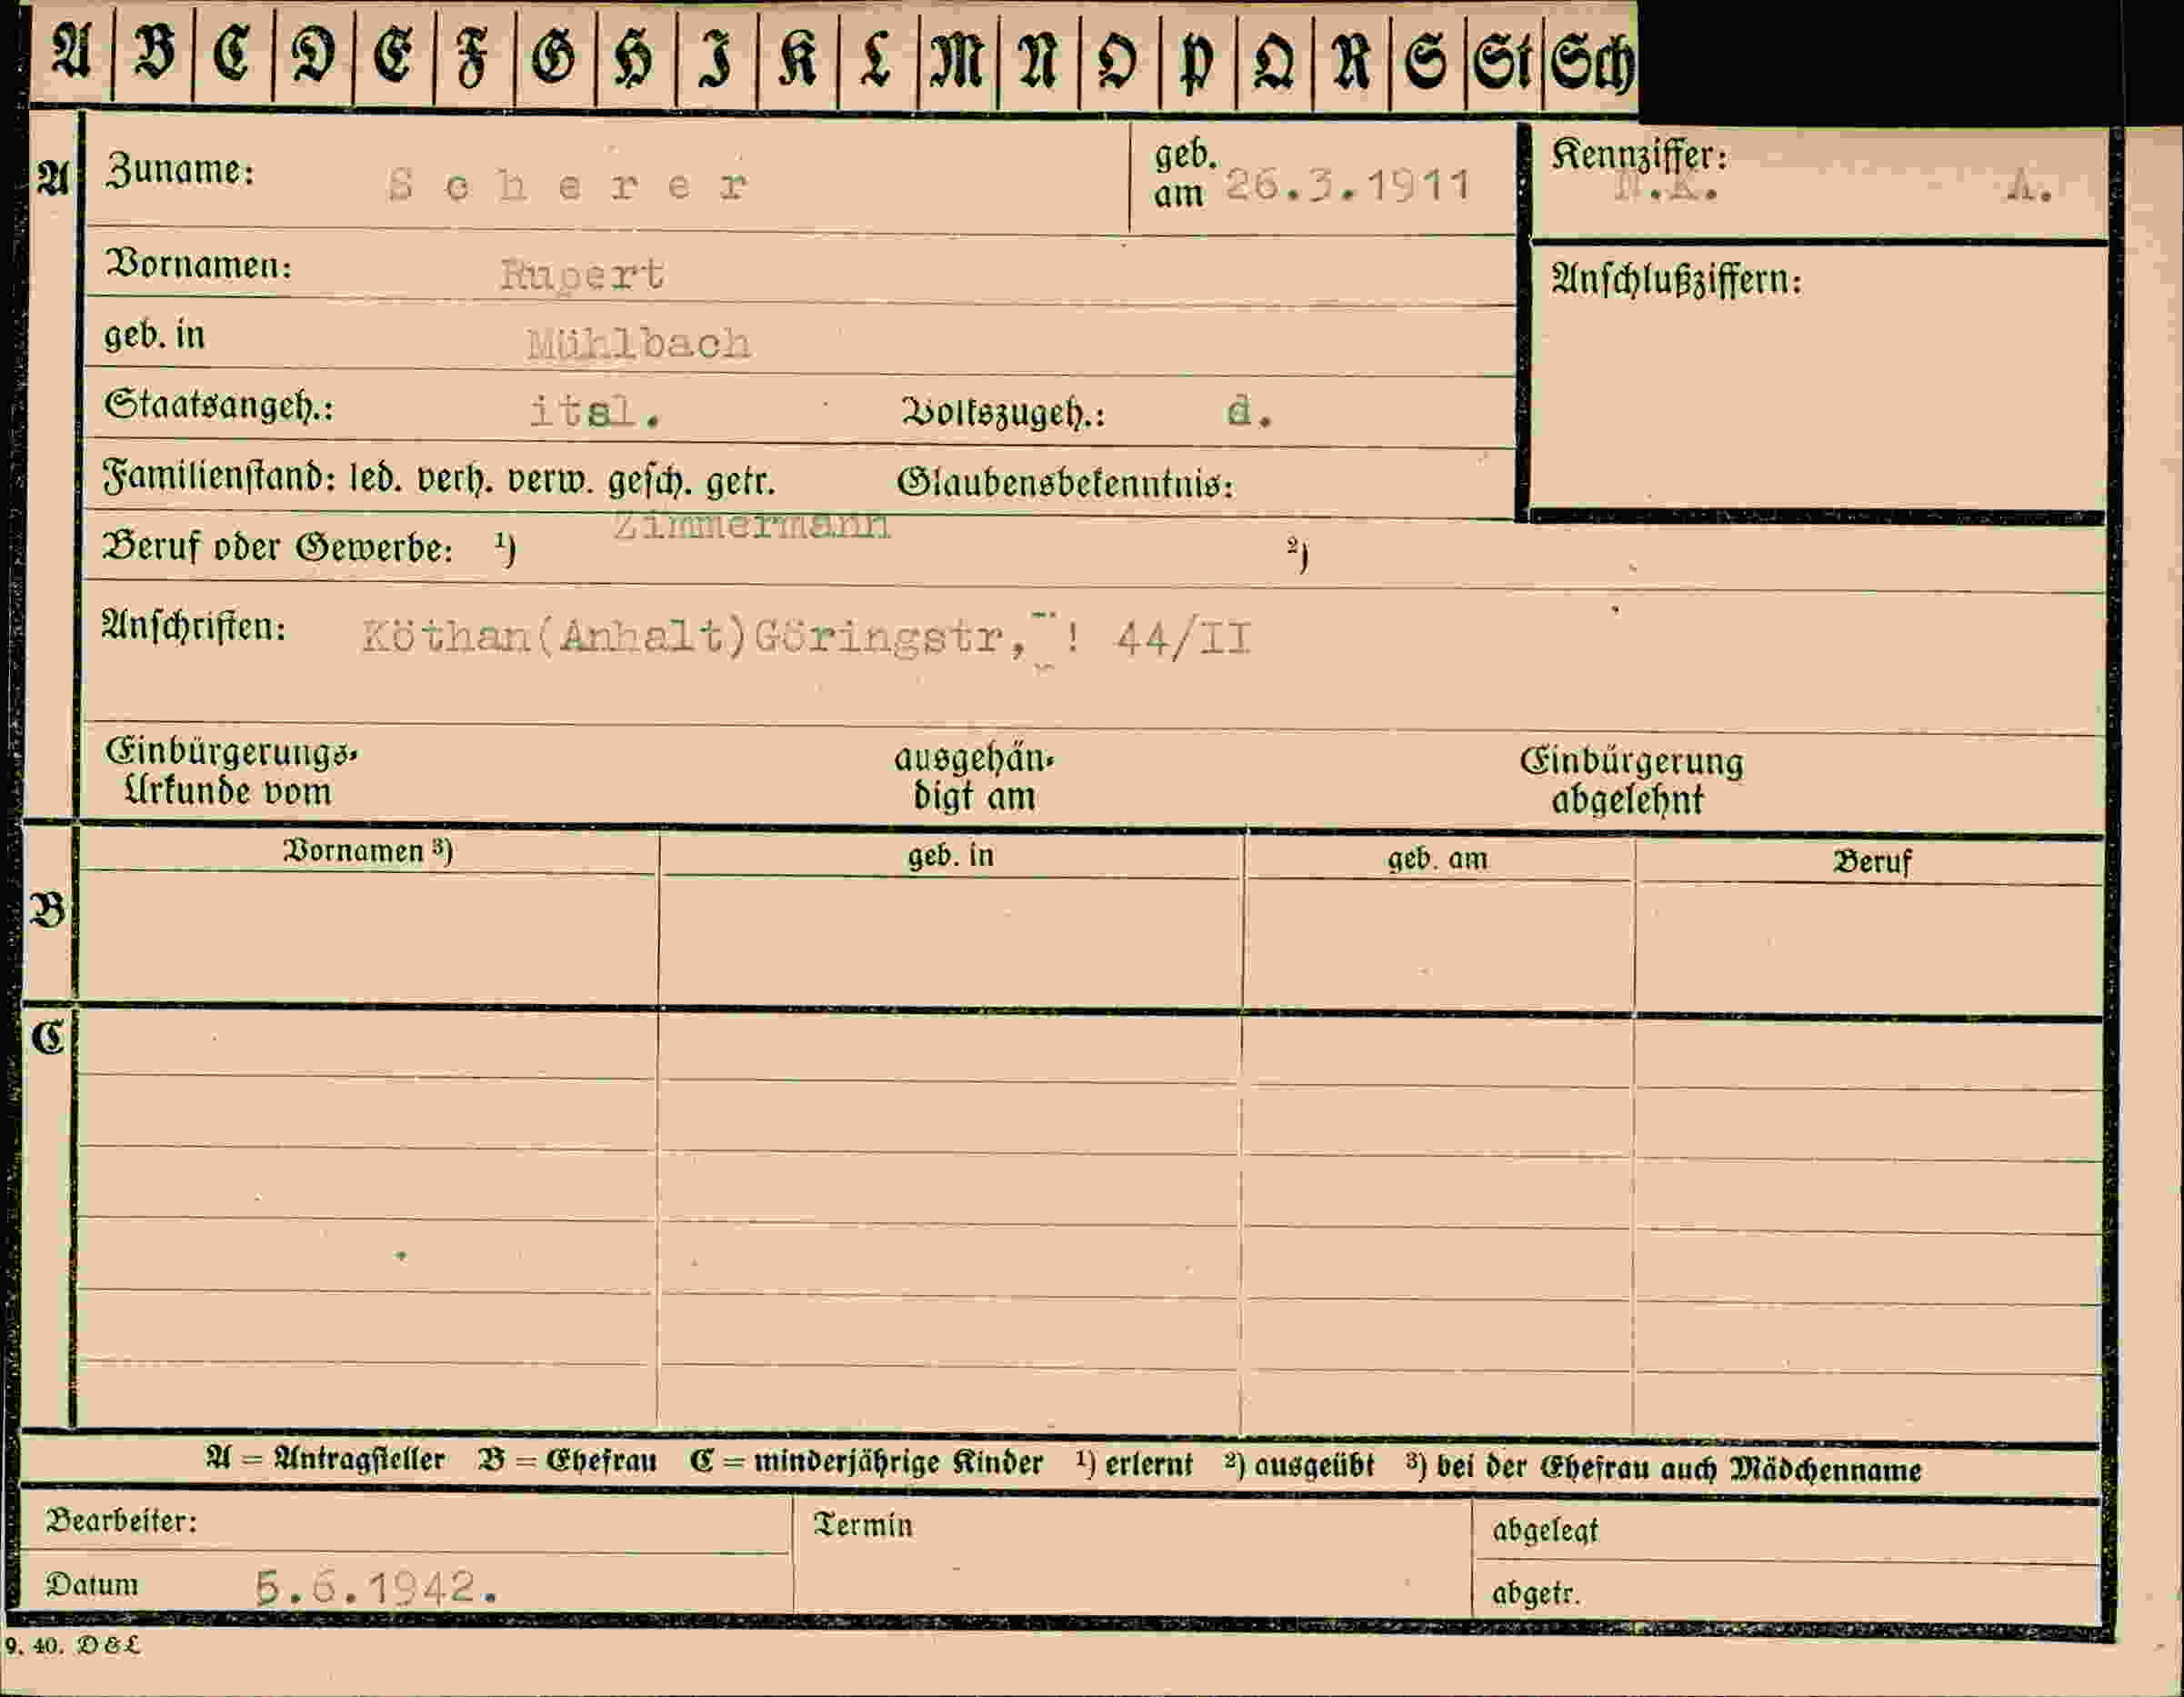 A B C D E F G H I K L M N O P Q R S St Sch
A Zuname: Scherer geb. am 26.3.1911 Kennziffer: N.K. A.
Vornamen: Rupert Anschlußziffern:
geb. in Mühlbach
Staatsangeh.: ital. Volkszugeh.: d.
Familienstand: led. verh. verw. gesch. getr. Glaubensbekenntnis:
Beruf oder Gewerbe: ¹) Zimmermann ²)
Anschriften: Köthan(Anhalt)Göringstr, ! 44/II
Einbürgerungs- ausgehän- Einbürgerung
Urkunde vom digt am abgelehnt
Vornamen ³) geb. in geb. am Beruf
B
C
A = Antragsteller B = Ehefrau C = minderjährige Kinder ¹) erlernt ²) ausgeübt ³) bei der Ehefrau auch Mädchenname
Bearbeiter: Termin abgelegt
Datum 5.6.1942. abgetr.
9. 40. D & L